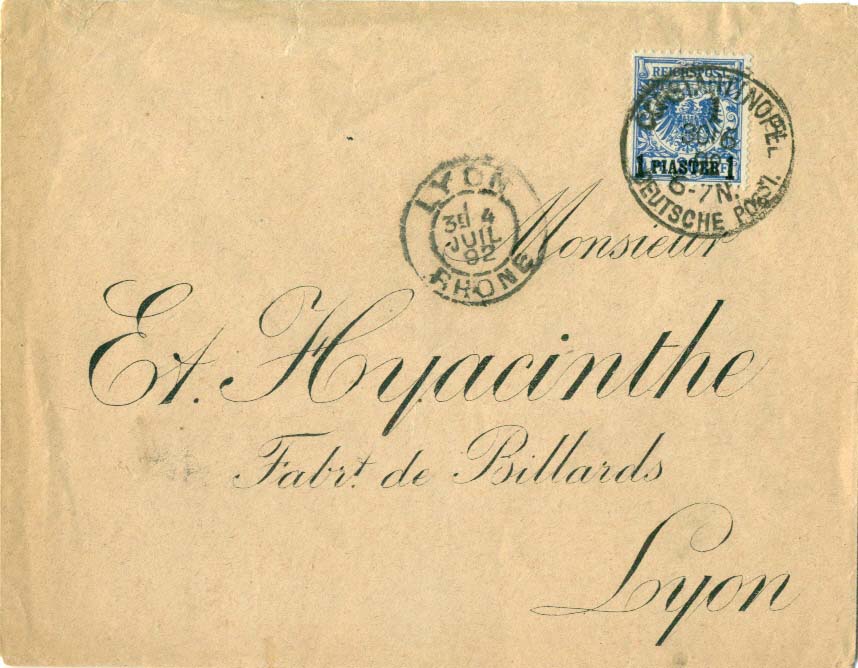 REICHSPOST
1 PIASTER 1
CONSTANTINOPEL
30/6
6-7N.
DEUTSCHE POST.
LYON
3E 4
JUIL
92
RHONE
Monsieur
Et. Hyacinthe
Fabrt. de Billards
Lyon